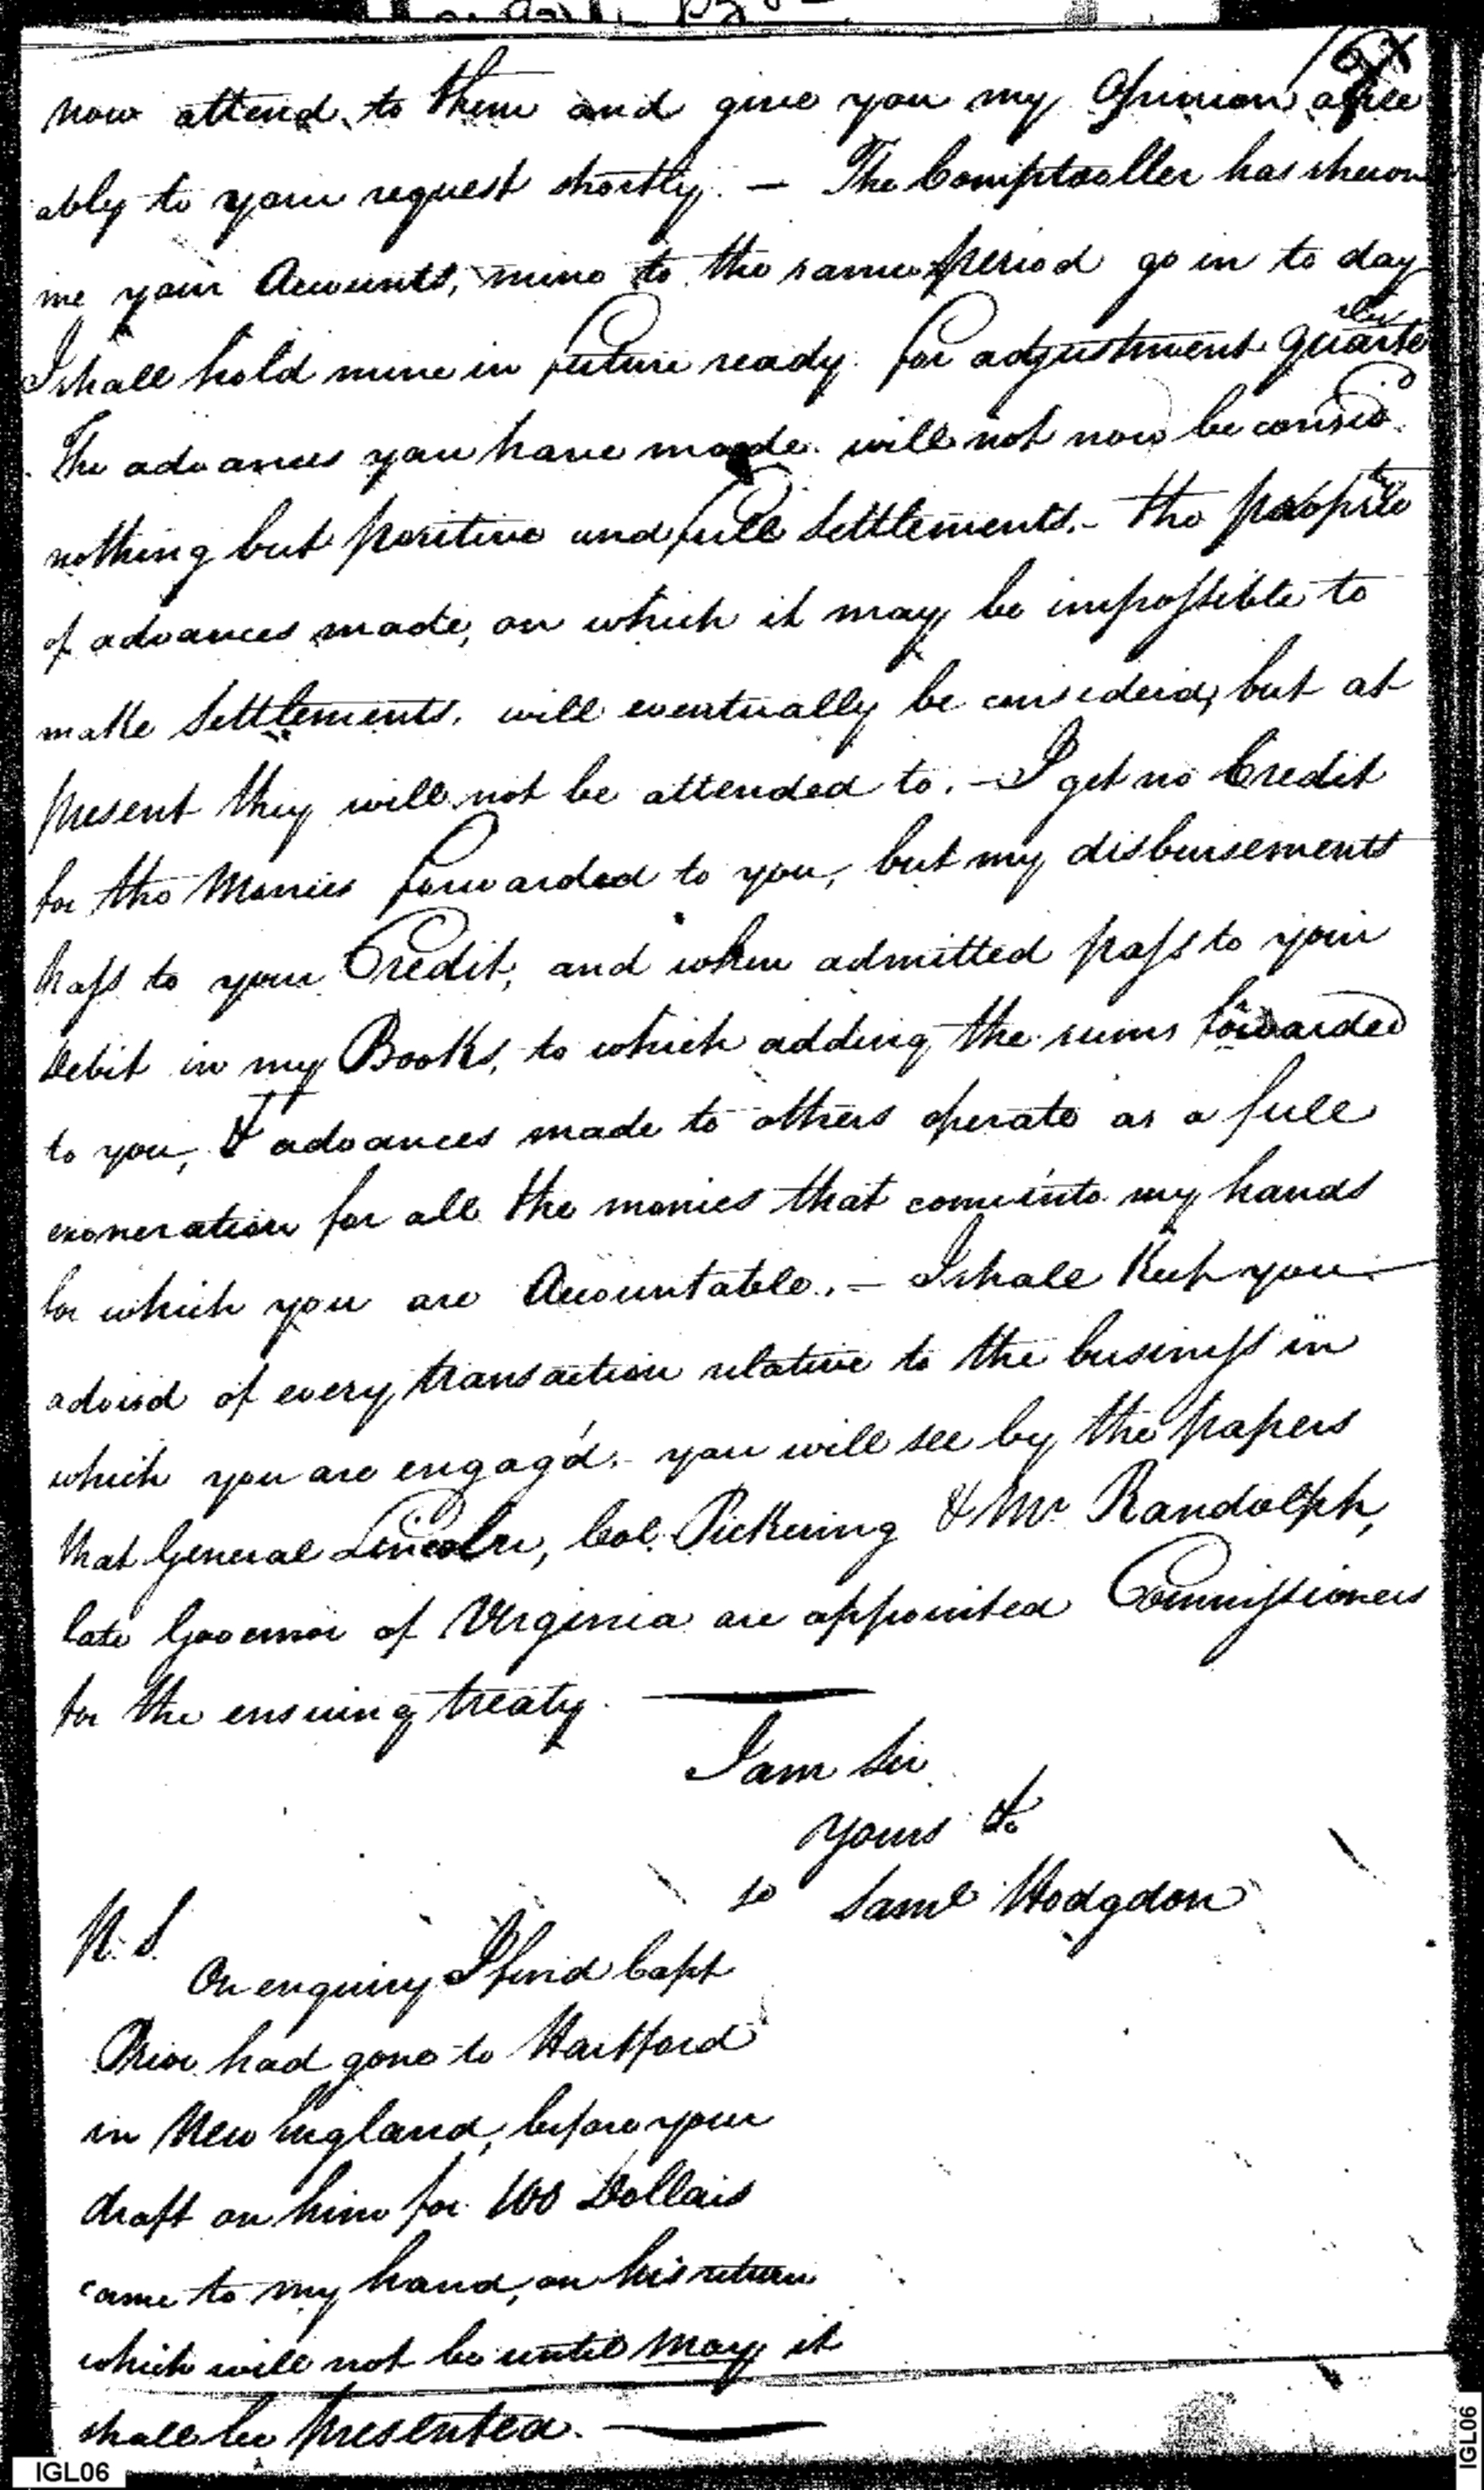 now attend to them and give you my Opinion agree
ably to your request shortly. — The Comptroller has shewn
me your Accounts, mine to the same period go in to day
I shall hold mine in future ready for adjustment quarter
The advances you have made will not now be consid
nothing but positive and full Settlements. – the
of advances made, on which it may be impossible to
make Settlements, will eventually be considerd, but at
present they will not be attended to. – I get no Credit
for the Monies forwarded to you, but my disbursements
pass to your Credit, and when admitted pass to your
debit in my Books, to which adding the sums forwarded
to you, & advances made to others operate as a full
exoneration for all the monies that come into my hands
for which you are Accountable. – I shall keep you
advisd of every transaction relative to the business in
which you are engag'd. – you will see by the papers
that General Lincoln, Col. Pickering & Mr Randolph,
late Governor of Virginia are appointed Commissioners
for the ensuing treaty. —
I am Sir
yours &c
Saml Hodgdon
P. S.
On enquiry I find Capt
Prior had gone to Hartford
in New England, before your
draft on him for 100 Dollars
came to my hand, on his return
which will not be until May it
shall be presented. —
IGL06
IGL06